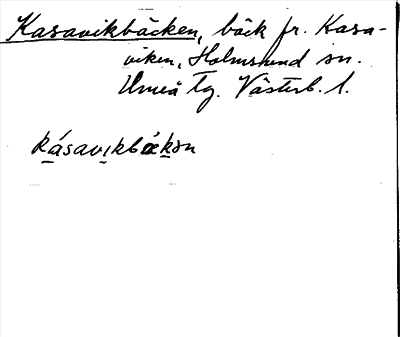 Kasavikbäcken, bäck fr. Kasa-
viken, Holmsund sn.
Umeå tg. Västerb. l.
kásavikbækən